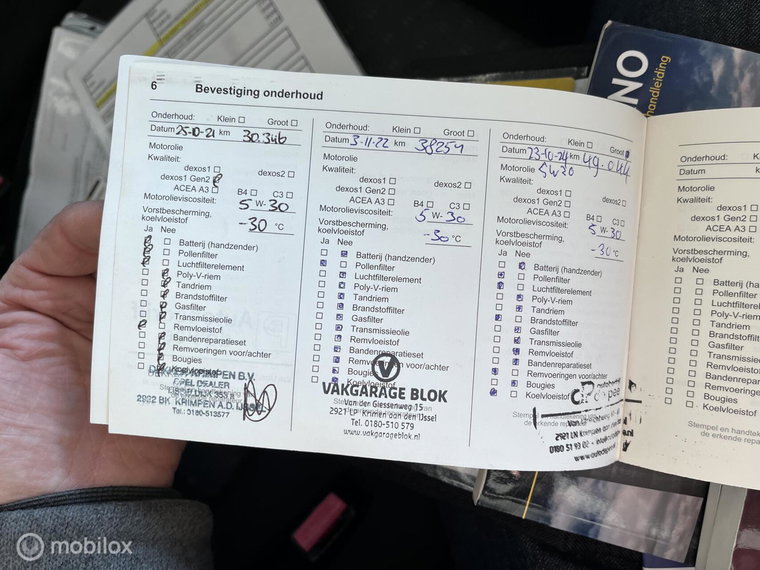 6 Bevestiging onderhoud
Onderhoud: Klein □ Groot □
Datum 25-10-21 km 30.346
Motorolie
Kwaliteit:
dexos1 □ dexos2 □
dexos1 Gen2
ACEA A3 □ B4 □ C3 □
Motorolieviscositeit: 5 W-30
Vorstbescherming,
koelvloeistof -30 °C
Ja Nee
Batterij (handzender)
Pollenfilter
Luchtfilterelement
Poly-V-riem
Tandriem
Brandstoffilter
Gasfilter
Transmissieolie
Remvloeistof
Bandenreparatieset
Remvoeringen voor/achter
Bougies
KRIMPEN B.V.
OPEL DEALER
2922 BK KRIMPEN A.D. IJSSEL
Tel.: 0180-513577
Onderhoud: Klein □ Groot □
Datum 3-11-22 km 38251
Motorolie
Kwaliteit:
dexos1 □ dexos2 □
dexos1 Gen2 □
ACEA A3 □ B4 □ C3 □
Motorolieviscositeit: 5 W-30
Vorstbescherming,
koelvloeistof -30 °C
Ja Nee
Batterij (handzender)
Pollenfilter
Luchtfilterelement
Poly-V-riem
Tandriem
Brandstoffilter
Gasfilter
Transmissieolie
Remvloeistof
Bandenreparatieset
Remvoeringen voor/achter
Bougies
Koelvloeistof
VAKGARAGE BLOK
Van der Giessenweg 15
2921 LP Krimpen aan den IJssel
Tel. 0180-510 579
www.vakgarageblok.nl
Onderhoud: Klein □ Groot
Datum 23-10-24 km 49.044
Motorolie 5W30
Kwaliteit:
dexos1 □ dexos2 □
dexos1 Gen2 □
ACEA A3 □ B4 □ C3 □
Motorolieviscositeit: 5 W-30
Vorstbescherming,
koelvloeistof -30 °C
Ja Nee
Batterij (handzender)
Pollenfilter
Luchtfilterelement
Poly-V-riem
Tandriem
Brandstoffilter
Gasfilter
Transmissieolie
Remvloeistof
Bandenreparatieset
Remvoeringen voor/achter
Bougies
Koelvloeistof
2921 LN Krimpen aan
0180 51
Onderhoud: K
Datum km
Motorolie
Kwaliteit:
dexos1 □
dexos1 Gen2 □
ACEA A3 □
Motorolieviscositeit:
Vorstbescherming,
koelvloeistof
Ja Nee
Batterij (ha
Pollenfilter
Luchtfilterele
Poly-V-riem
Tandriem
Brandstoffilte
Gasfilter
Transmissieo
Remvloeistof
Bandenrepara
Remvoeringen
Bougies
Koelvloeistof
Stempel en handtek
de erkende repara
NO
handleiding
mobilox